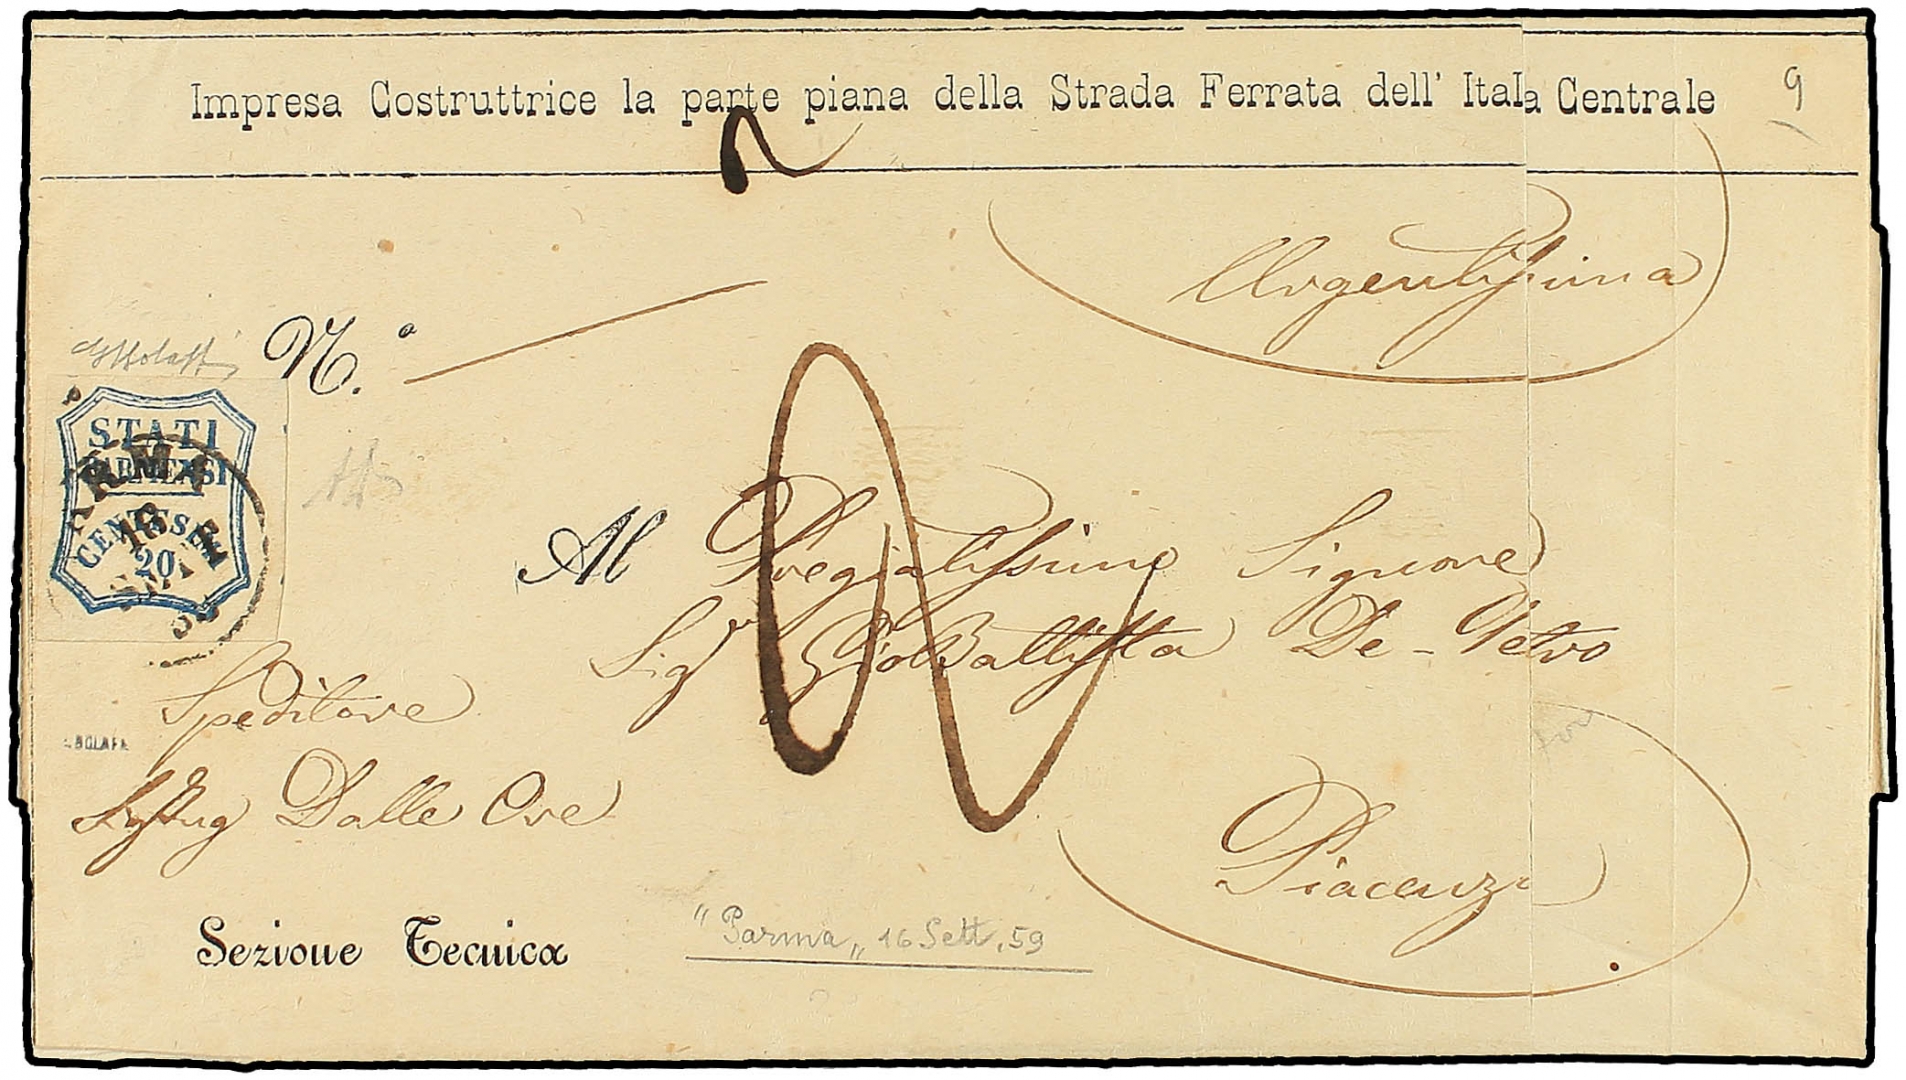 Impresa Costruttrice la parte piana della Strada Ferrata dell' Itala Centrale
9
Urgentissima
N.º
STATI
PARMENSI
CENTESIMI
20
PARMA
16
SETT
59
Al Pregiatissimo Signore
Sigr Gio Battista De-Petro
Speditore
BOLAFFI
Dalle Ore
Piacenza
Sezione Tecnica
"Parma„ 16 Sett. 59